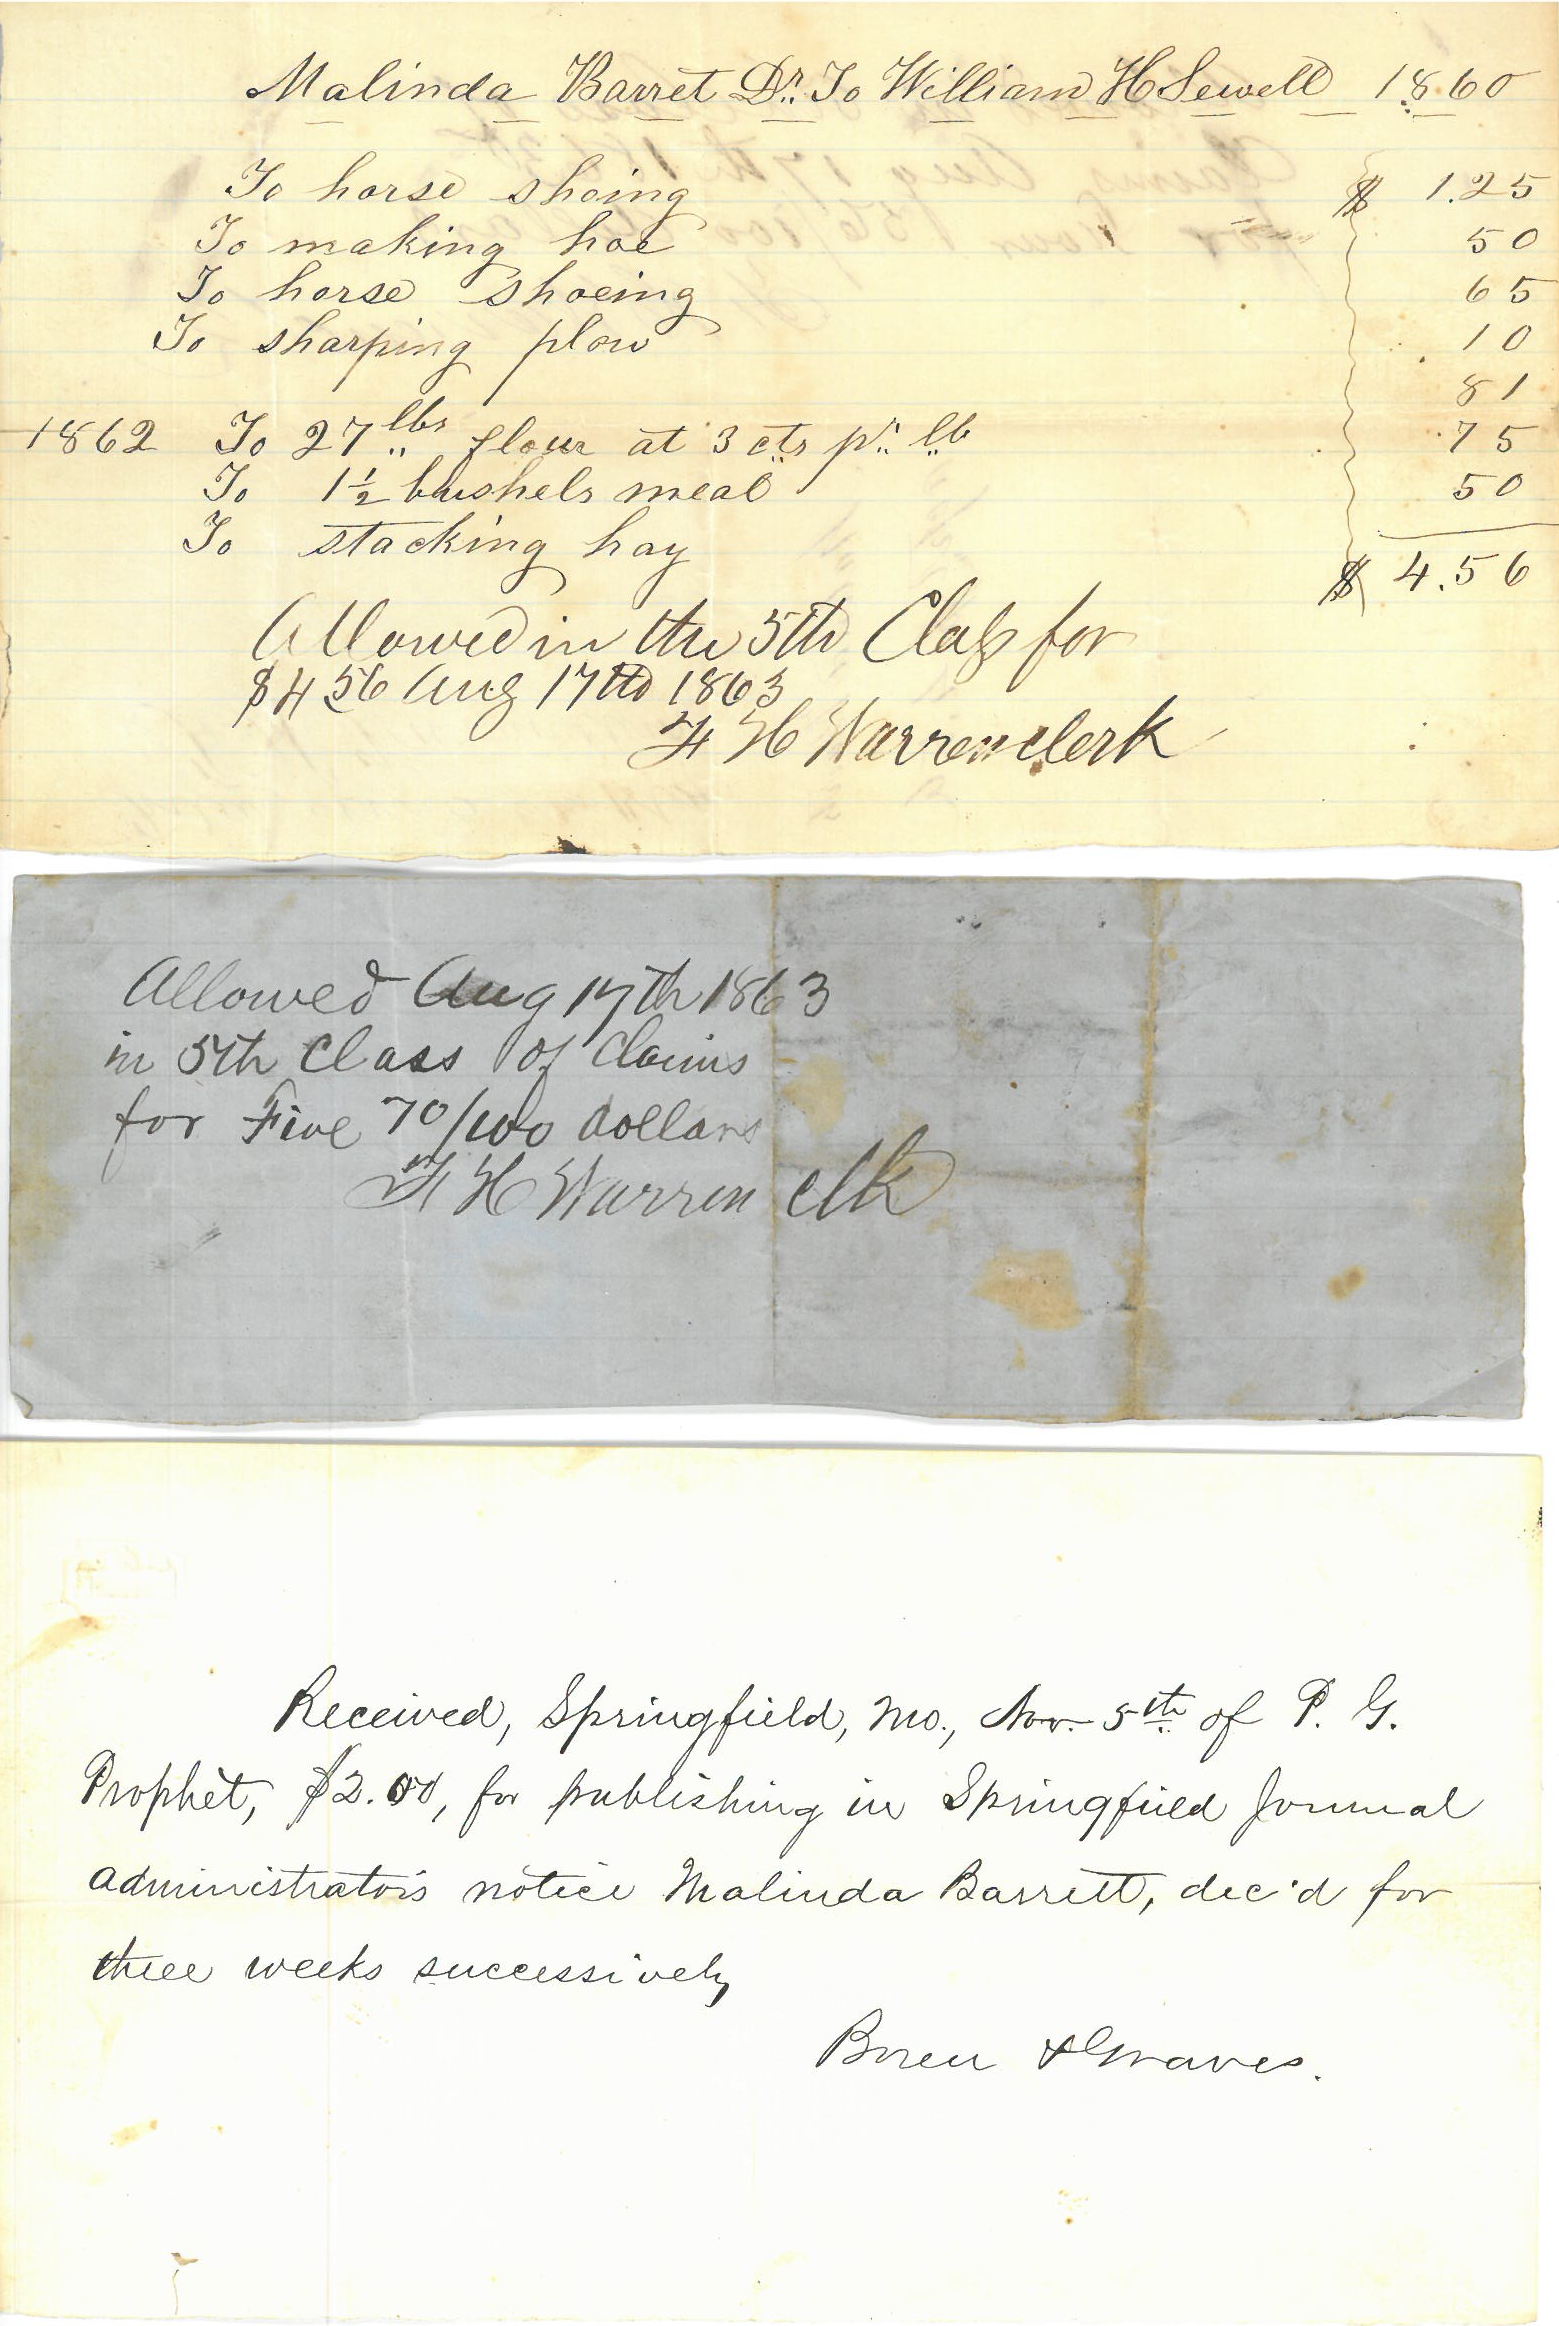 Malinda Barret Dr. To William H Sewell 1860
To horse shoing $ 1.25
To making hoe 50
To horse shoeing 65
To sharping plow 10
81
1862 To 27 lbs flour at 3 cts pr lb 75
To 1½ bushels meal 50
To stacking hay
$ 4.56
Allowed in the 5th Class for
$4 56 Aug 17th 1863
F H Warren clerk
Allowed Aug 17th 1863
in 5th Class of Claims
for Five 70/100 dollars
F H Warren clk
Received, Springfield, Mo., Nov. 5th of P. G.
Prophet, $2.00, for publishing in Springfield Journal
administrators notice Malinda Barrett, dec'd for
three weeks successively
Boren & Graves.